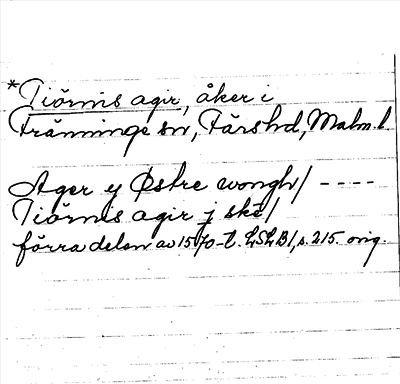 *Tiörnis agir, åker i
Tränninge sn, Färs hd, Malm. l.
Ager ÿ Østre wongh/ ----
Tiörnis agir j ske/
förra delen av 1570-t. LSLB1, s. 215. orig.